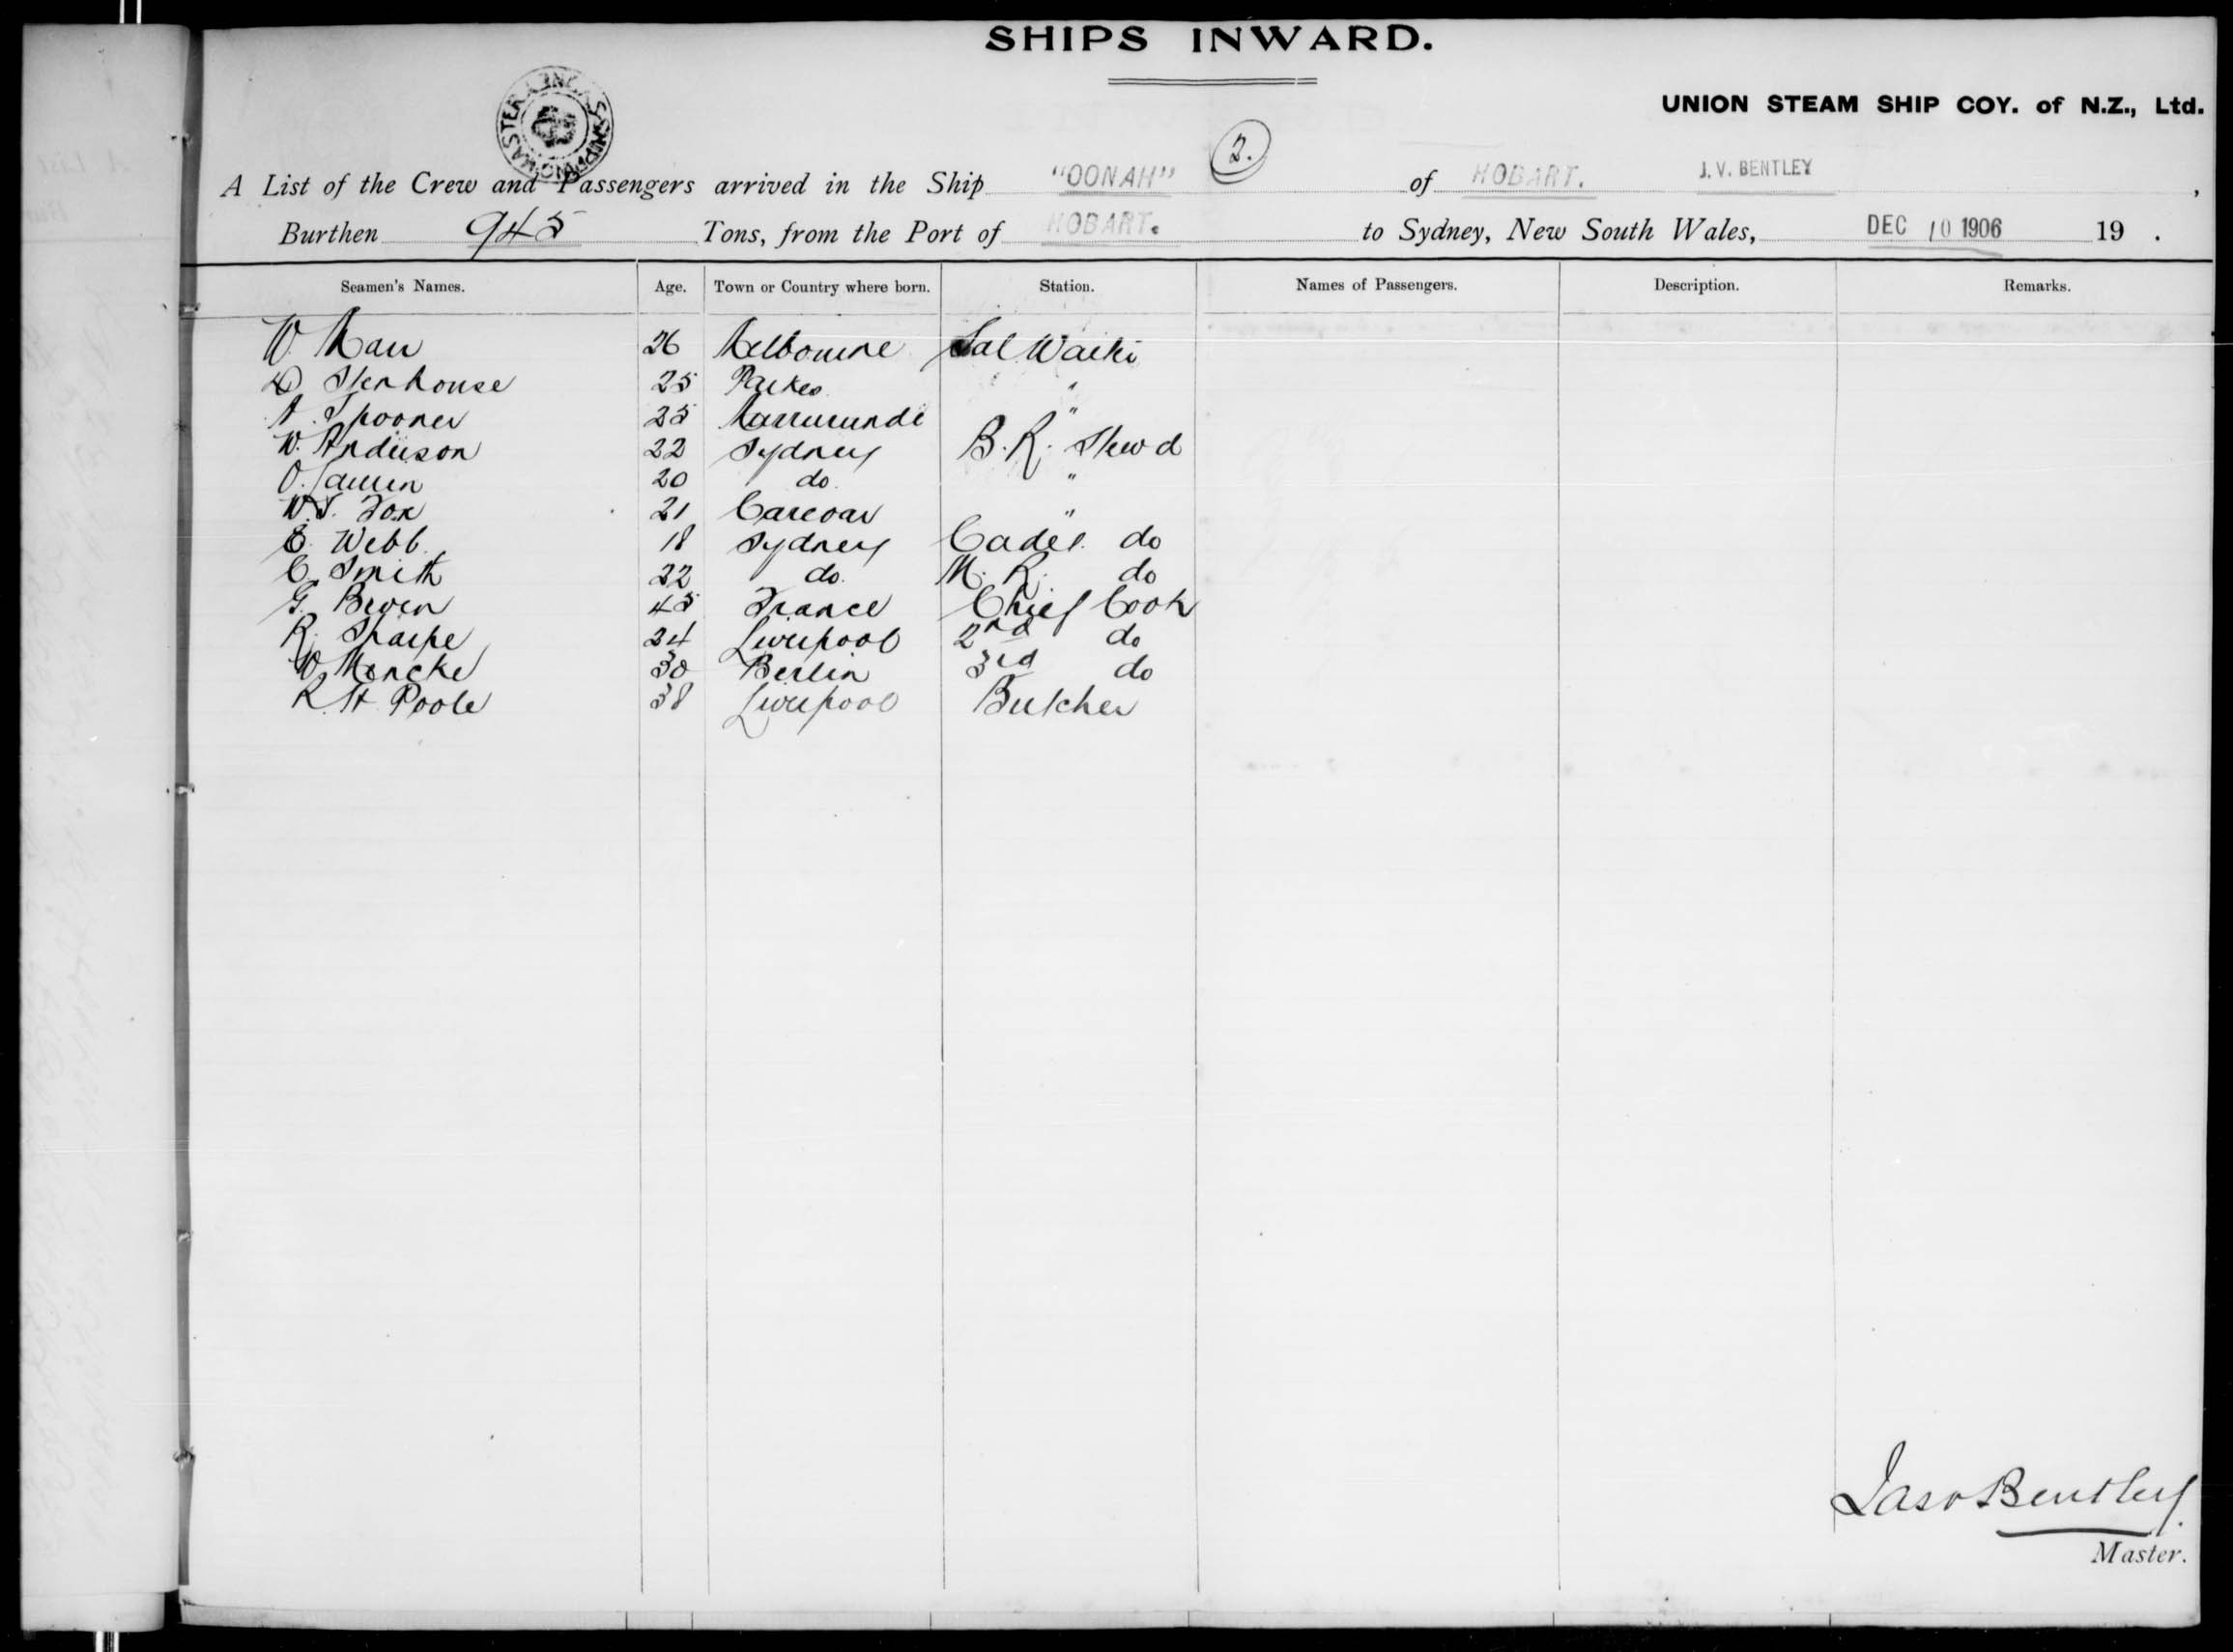 SHIPS INWARD.
UNION STEAM SHIP COY. of N.Z., Ltd.
SHIPPING MASTER SYDNEY
2.
A List of the Crew and Passengers arrived in the Ship "OONAH" of HOBART. J. V. BENTLEY ,
Burthen 945 Tons, from the Port of HOBART. to Sydney, New South Wales, DEC 10 1906 19 .
Seamen's Names. Age. Town or Country where born. Station. Names of Passengers. Description. Remarks.
W. 26 Melbourne Sal
D Stenhouse 25 Parkes "
A. Spooner 25 Murrurundi "
W. Anderson 22 Sydney B. R. Stewd
O. 20 do "
W. S. Fox 21 Carcoar "
E. Webb 18 Sydney Cadet do
C. Smith 22 do. M. R. do
G. 45 France Chief Cook
R. Sharpe 24 Liverpool 2nd do
W Moncke 30 Berlin 3rd do
R. St Poole 38 Liverpool Butcher
Jas v Bentley
Master.